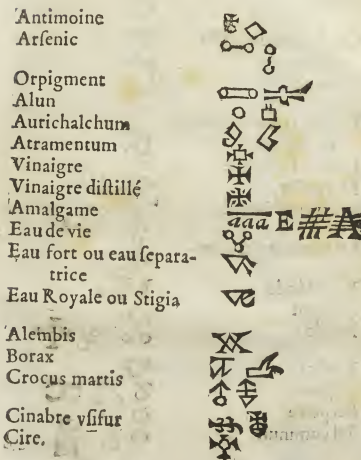 Antimoine
Arſenic
Orpigment
Alun
Aurichalchum
Atramentum
Vinaigre
Vinaigre diſtillé
Amalgame aaa E
Eau de vie
Eau fort ou eau ſepara-
trice
Eau Royale ou Stigia
Alembis
Borax
Crocus martis
Cinabre vſifur
Cire.